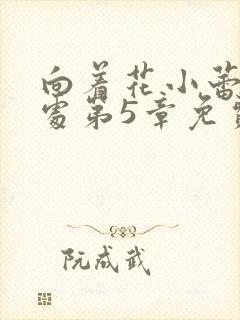 向着花小蕾
处第5章免费
阮成武